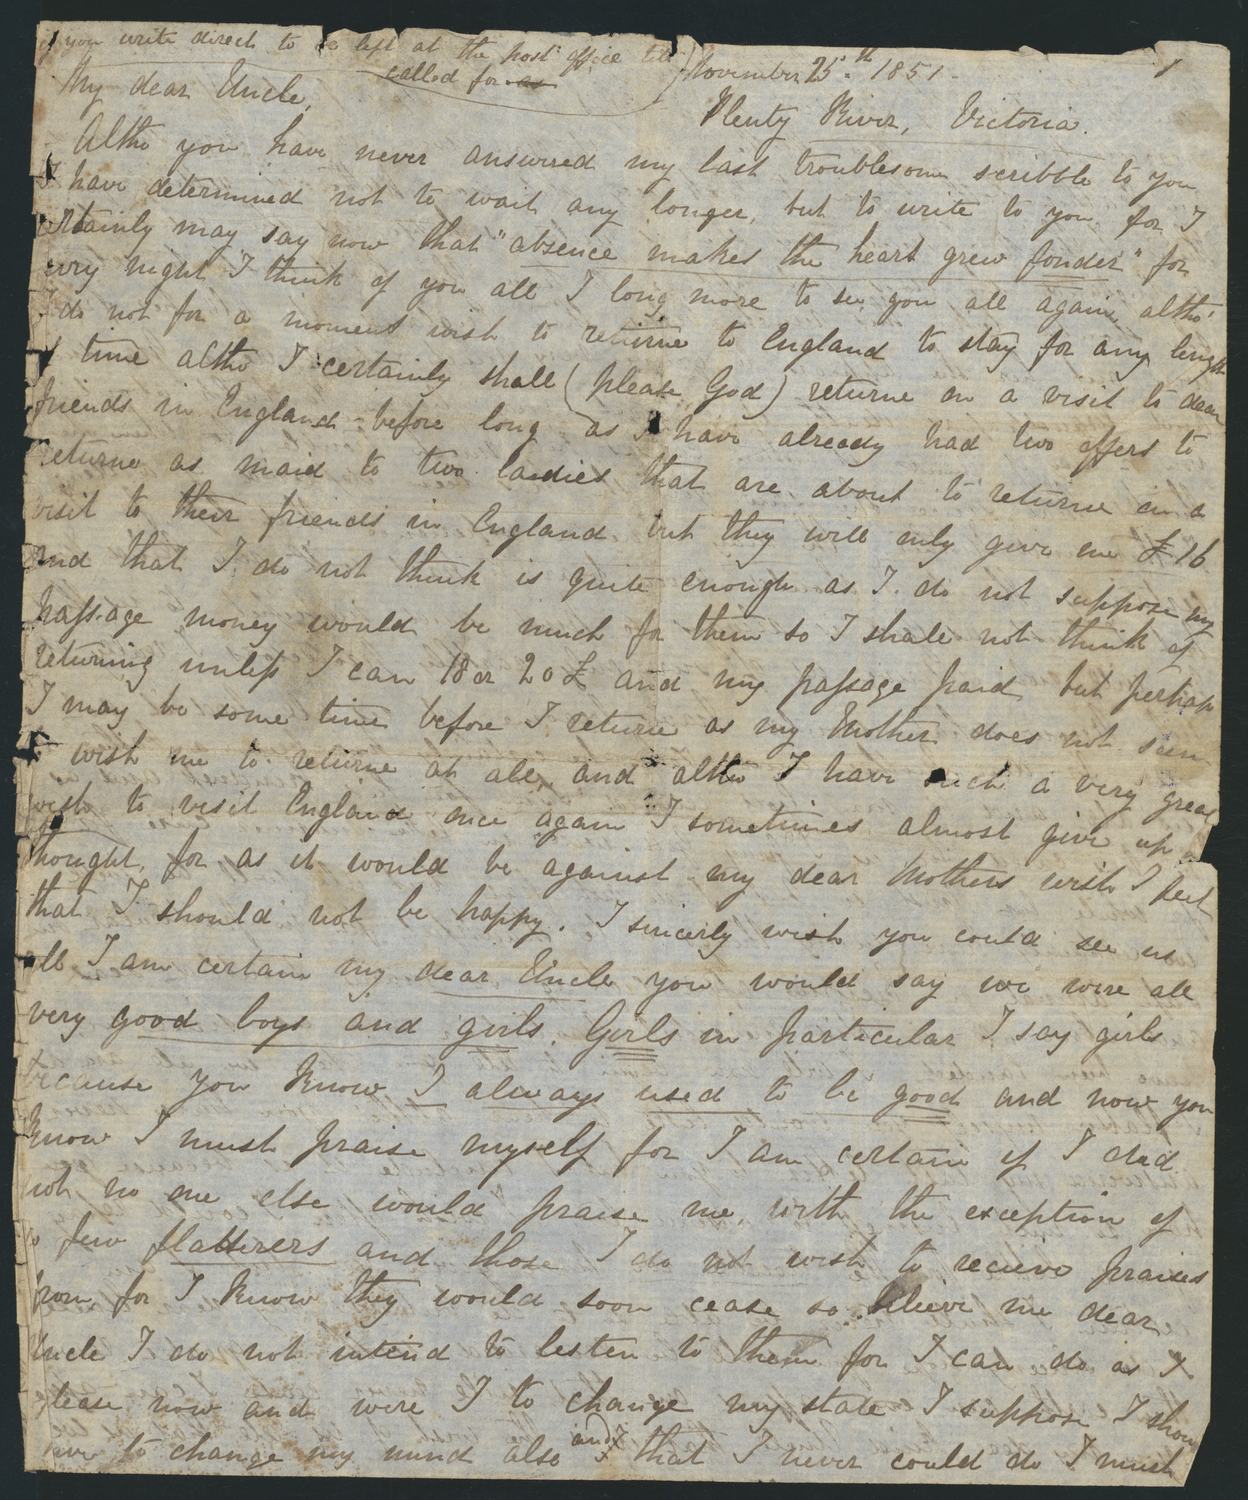 if you write direct to be left at the post office till
called for as
November 25th 1851 1
My dear Uncle,
Plenty River, Victoria.
Altho you have never answered my last troublesome scribble to you
I have determined not to wait any longer, but to write to you for I
certainly may say now that "absence makes the heart grew fonder" for
every night I think of you all I long more to see you all again altho'
I do not for a moment wish to returne to England to stay for any length
of time altho I certainly shall (please God) returne on a visit to dear
friends in England before long as I have already had two offers to
returne as maid to two ladies that are about to returne on a
visit to their friends in England but they will only give me £16
and that I do not think is quite enough as I do not suppose my
passage money would be much for them so I shall not think of
returning unless I can 18 or 20£ and my passage paid but perhaps
I may be some time before I returne as my Mother does not seem
to wish me to returne at all, and altho I have such a very great
wish to visit England once again I sometimes almost give up
thought, for as it would be against my dear Mothers wish I feel
that I should not be happy. I sincerly wish you could see us
all I am certain my dear Uncle you would say we were all
very good boys and girls. Girls in particular I say girls
because you know I always used to be good and now you
know I must praise myself for I am certain if I did
not no one else would praise me, with the exception of
a few flatterers and those I do not wish to recieve praises
from, for I know they would soon cease so believe me dear
Uncle I do not intend to listen to them for I can do as I
please now and were I to change my state I suppose I should
have to change my mind also and that I never could do I much